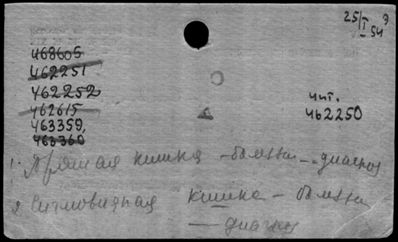 25/I 54 Э
468605
462251
462252
462615
463359,
463360
чит.
462250
1. Прямая кишка – болезни – диагноз
2 Сигмовидная кишка – болезни
— диагноз